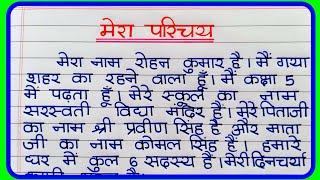 मेरा परिचय
मेरा नाम रोहन कुमार है। मैं गया
शहर का रहने वाला हूँ। मैं कक्षा 5
में पढ़ता हूँ। मेरे स्कूल का नाम
सरस्वती विद्या मंदिर है। मेरे पिताजी
का नाम श्री प्रवीण सिंह है और माता
जी का नाम कोमल सिंह है। हमारे
घर में कुल 6 सदस्य हैं। मेरी दिनचर्या